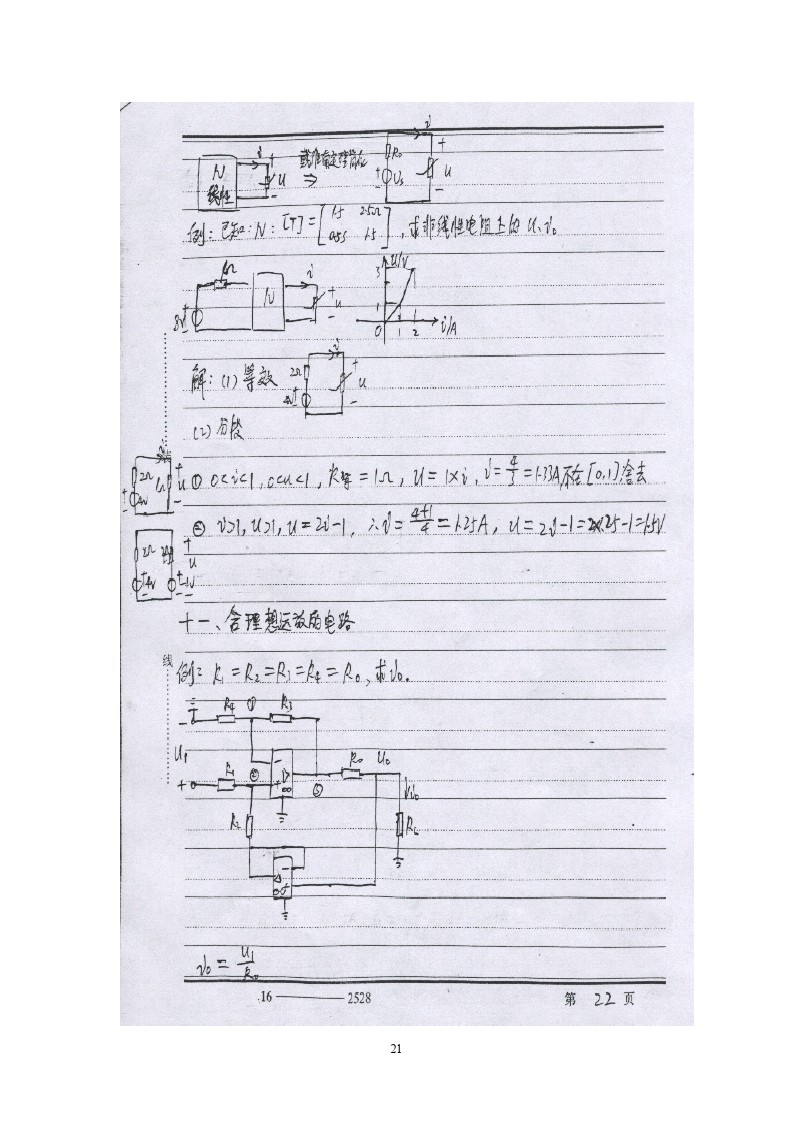 N
线性
i
+
u
-
戴维南定理简化
⇒
i
R₀
+
Us
-
+
u
-
例：已知：N：[T]=[1.5 2.5Ω
0.5S 1.5]，求非线性电阻上的u、i。
6Ω
8V
+
-
N
i
+
u
-
u/V
3
1
0
1
2
i/A
解：(1) 等效
2Ω
4V
+
-
i
+
u
-
(2) 分段
2Ω
1Ω
4V
+
u
-
① 0<i<1，0<u<1，R等=1Ω，u=1×i，i=4/3=1.33A 不在[0,1] 舍去
② i>1，u>1，u=2i-1，∴i=(4+1)/4=1.25A，u=2i-1=2×1.25-1=1.5V
2Ω
2Ω
+
u
-
+4V
+-1V
-
十一、含理想运放的电路
线
例：R₁=R₂=R₃=R₄=R₀，求i₀。
R₄
①
R₃
-
U₁
+
R₁
②
-
+
▷
∞
③
R₀
U₀
i₀
R₂
R_L
-
+
∞
i₀=U₁/R₀
.16 ——— 2528
第 22 页
21